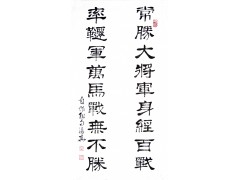 常勝大將軍身經百戰
率韆軍萬馬戰無不勝